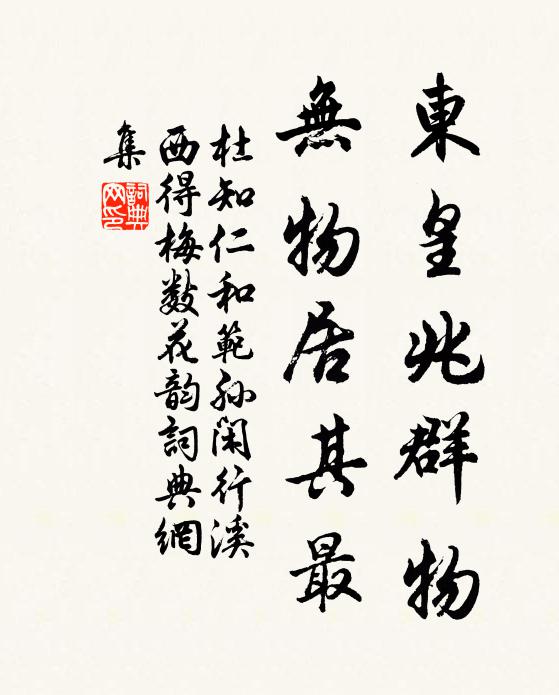 東皇兆群物
無物居其最
杜知仁和範孫閑行溪
西得梅數花韵詞典網
集
詞典网印